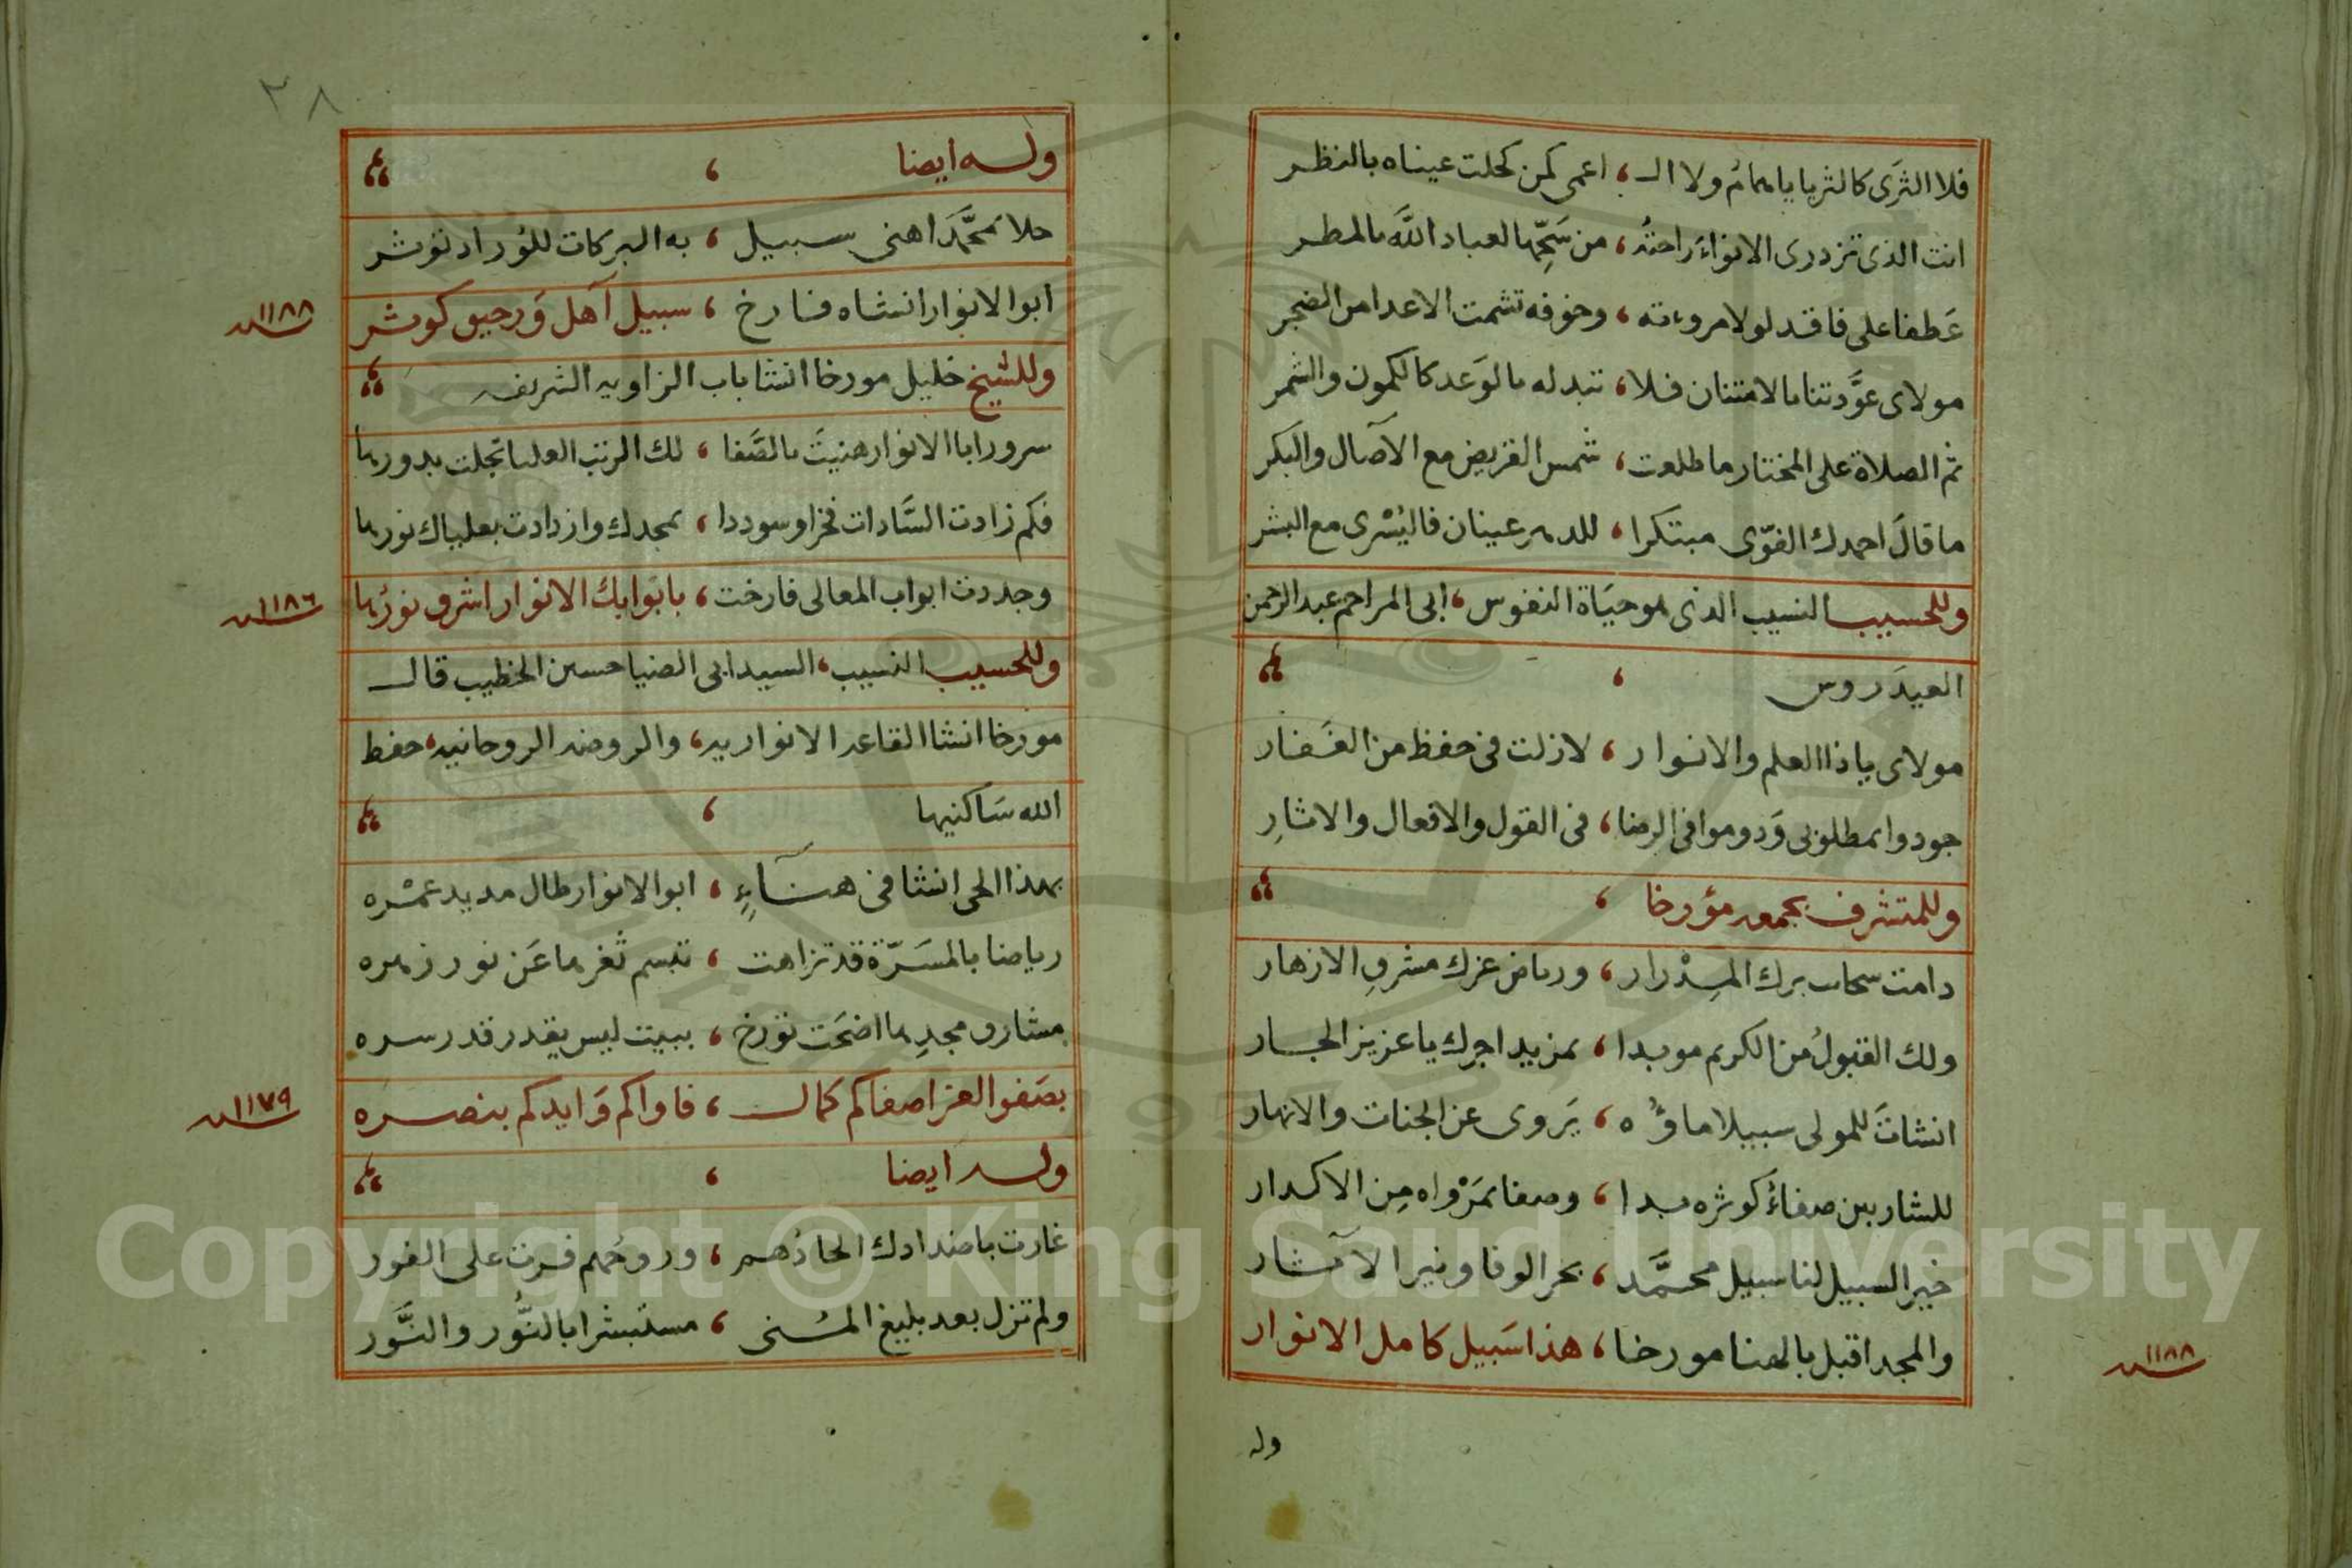 فلا الثرى كالثريا يا همام ولا الـ ، اعمى كمن كحلت عيناه بالنظر
انت الذى تزدرى الانواء راحته ، من سحها لعباد الله بالمطر
عطفا على فاقد لولا مروءته ، وخوفه تشمت الاعدا من الضجر
مولاى عودتنا بالامتنان فلا ، تبدله بالوعد كالكمون والثمر
ثم الصلاة على المختار ما طلعت ، شمس القريض مع الآصال والبكر
ما قال احمدك الفوّى مبتكرا ، للدهر عينان فاليسرى مع البشر
وللحسيب النسيب الذى هو حياة النفوس ، ابى المراحم عبد الرحمن
العيدروس ،
مولاى ياذا العلم والانوار ، لازلت فى حفظ من الغفار
جودوا بمطلوبى ودوموا فى الرضا ، فى القول والافعال والاثار
وللمتشرف بجمعه مؤرخا ،
دامت سحاب برك المدرار ، ورياض عزك مشرق الازهار
ولك القبول من الكريم موبدا ، بمزيد اجرك يا عزيز الجار
انشات للمولى سبيلا ماؤه ، يروى عن الجنات والانهار
للشاربين صفاء كوثره بدا ، وصفا بمرواه من الاكدار
خير السبيل لنا سبيل محمد ، بحر الوفا ونير الآثار
والمجد اقبل بالهنا مورخا ، هذا سبيل كامل الانوار
١١٨٨ سنه
وله
٢٨
وله ايضا ،
حلا بمحمد اهنى سبيل ، به البركات للوراد توثر
ابو الانوار انشاه فارخ ، سبيل آهل ورحيق كوثر
١١٨٨ سنه
وللشيخ خليل مورخا انشا باب الزاويه الشريفه
سرورا ابا الانوار هنيت بالصفا ، لك الرتب العليا تجلت بدورها
فكم زادت السادات فخرا وسوددا ، بمجدك وازدادت بعلياك نورها
وجددت ابواب المعالى فارخت ، بابوابك الانوار اشرق نورها
١١٨٦ سنه
وللحسيب النسيب ، السيد ابى الضيا حسين الخطيب قال
مورخا انشا القاعه الانواريه ، والروضه الروحانيه ، حفظ
الله ساكنيها ،
بهذا الحى انشا فى هناء ، ابو الانوار طال مديد عمره
رياضا بالمسرة قد تزاهت ، تبسم ثغرها عن نور زهره
مشارق مجدها اضحت تورخ ، ببيت ليس يقدر قدر سره
بصفو العز اصفاكم كمال ، فاواكم وايدكم بنصره
١١٧٩ سنه
وله ايضا ،
غارت باضدادك الحاذهم ، وروحهم فرت على الفور
ولم تزل بعد بليغ المنى ، مستبشرا بالنور والنور
Copyright © King Saud University